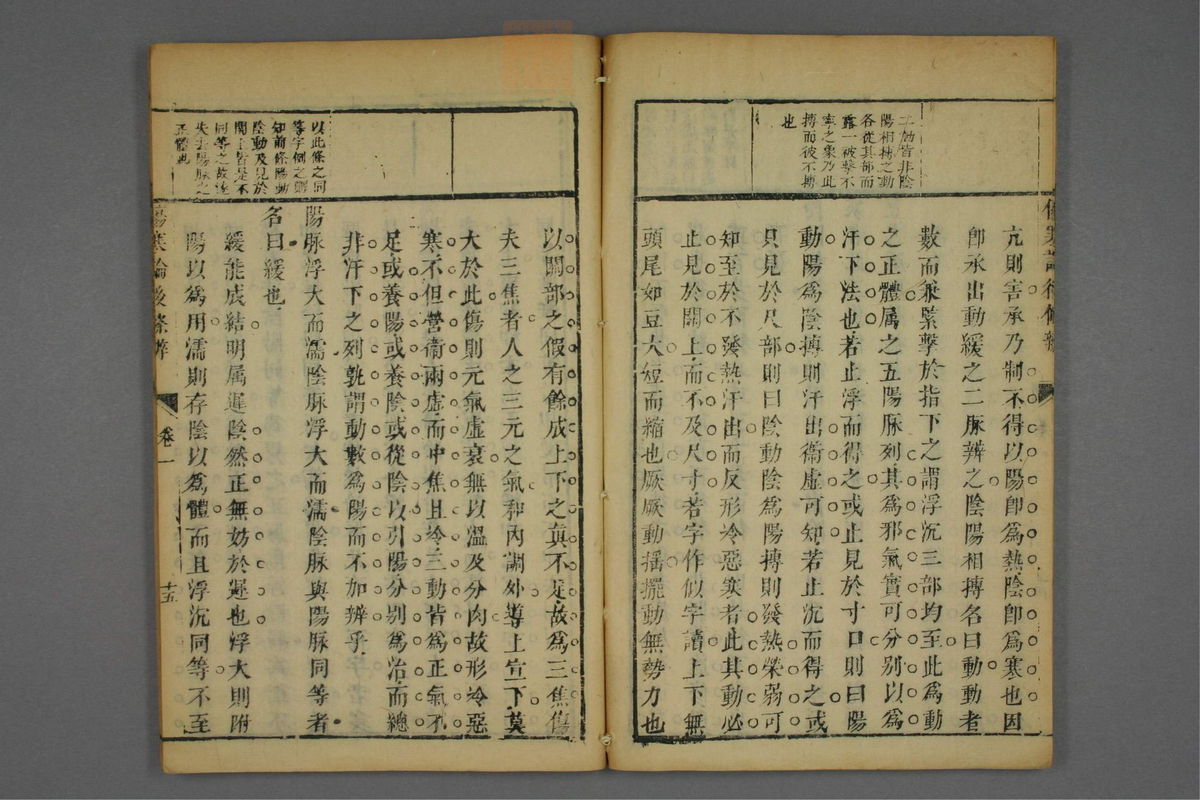 亢則害承乃制不得以陽卽爲熱陰卽爲寒也因
卽承出動緩之二脉辨之陰陽相搏名曰動動者
數而兼緊擊於指下之謂浮沉三部均至此爲動
之正體属之五陽脉列其爲邪氣實可分别以爲
汗下法也若止浮而得之或止見於寸口則曰陽
動陽爲陰搏則汗出衞虛可知若止沉而得之或
只見於尺部則曰陰動陰爲陽搏則發熱榮弱可
知至於不發熱汗出而反形冷惡寒者此其動必
止見於關上而不及尺寸若字作似字讀上下無
頭尾如豆大短而縮也厥厥動揺擺動無勢力也
非陰
陽相搏之動
各從其部而
露一被擊不
寧之象乃此
搏而彼不搏
也
以關部之假有餘成上下之眞不足故爲三焦傷
夫三焦者人之三元之氣和內調外導上宣下莫
大於此傷則元氣虛衰無以溫及分肉故形冷惡
寒不但營衞兩虛而中焦且冷三動皆爲正氣不
足或養陽或養陰或從陰以引陽分别爲治而總
非汗下之列孰謂動數爲陽而不加辨乎
陽脉浮大而濡陰脉浮大而濡陰脉與陽脉同等者
名曰緩也
緩能成結明属遲陰然正無妨於遲也浮大則附
陽以爲用濡則存陰以爲體而且浮沉同等不至
以此條之同
等字例之
知前條陽動
陰動及見於
關上皆是不
同等之故遂
失去陽脉之
正體也
傷寒論後條辨
卷一
十五